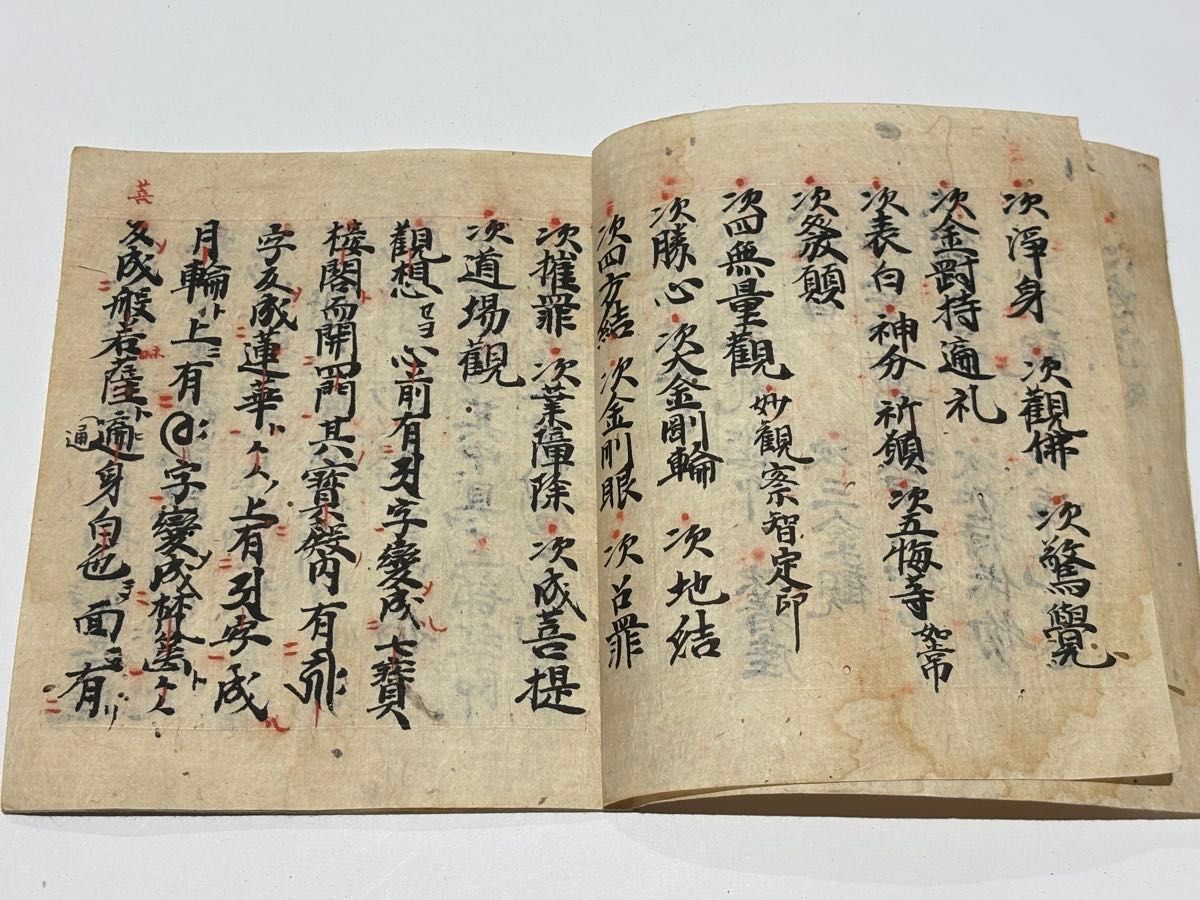 次淨身 次觀佛 次驚覺
次金剛持遍礼
次表白 神分 祈願 次五悔等 如常
次發願
次四無量觀 妙觀察智定印
次勝心 次大金剛輪 次地結
次四方結 次金剛眼 次召罪
次摧罪 次業障除 次成菩提
次道場觀
觀想セヨ心前有 字變成七寶
樓閣而開四門其寶殿内有
字反成蓮華 上有 字成
月輪 上有 字變成梵篋
反成般若薩遍身白色面有
通